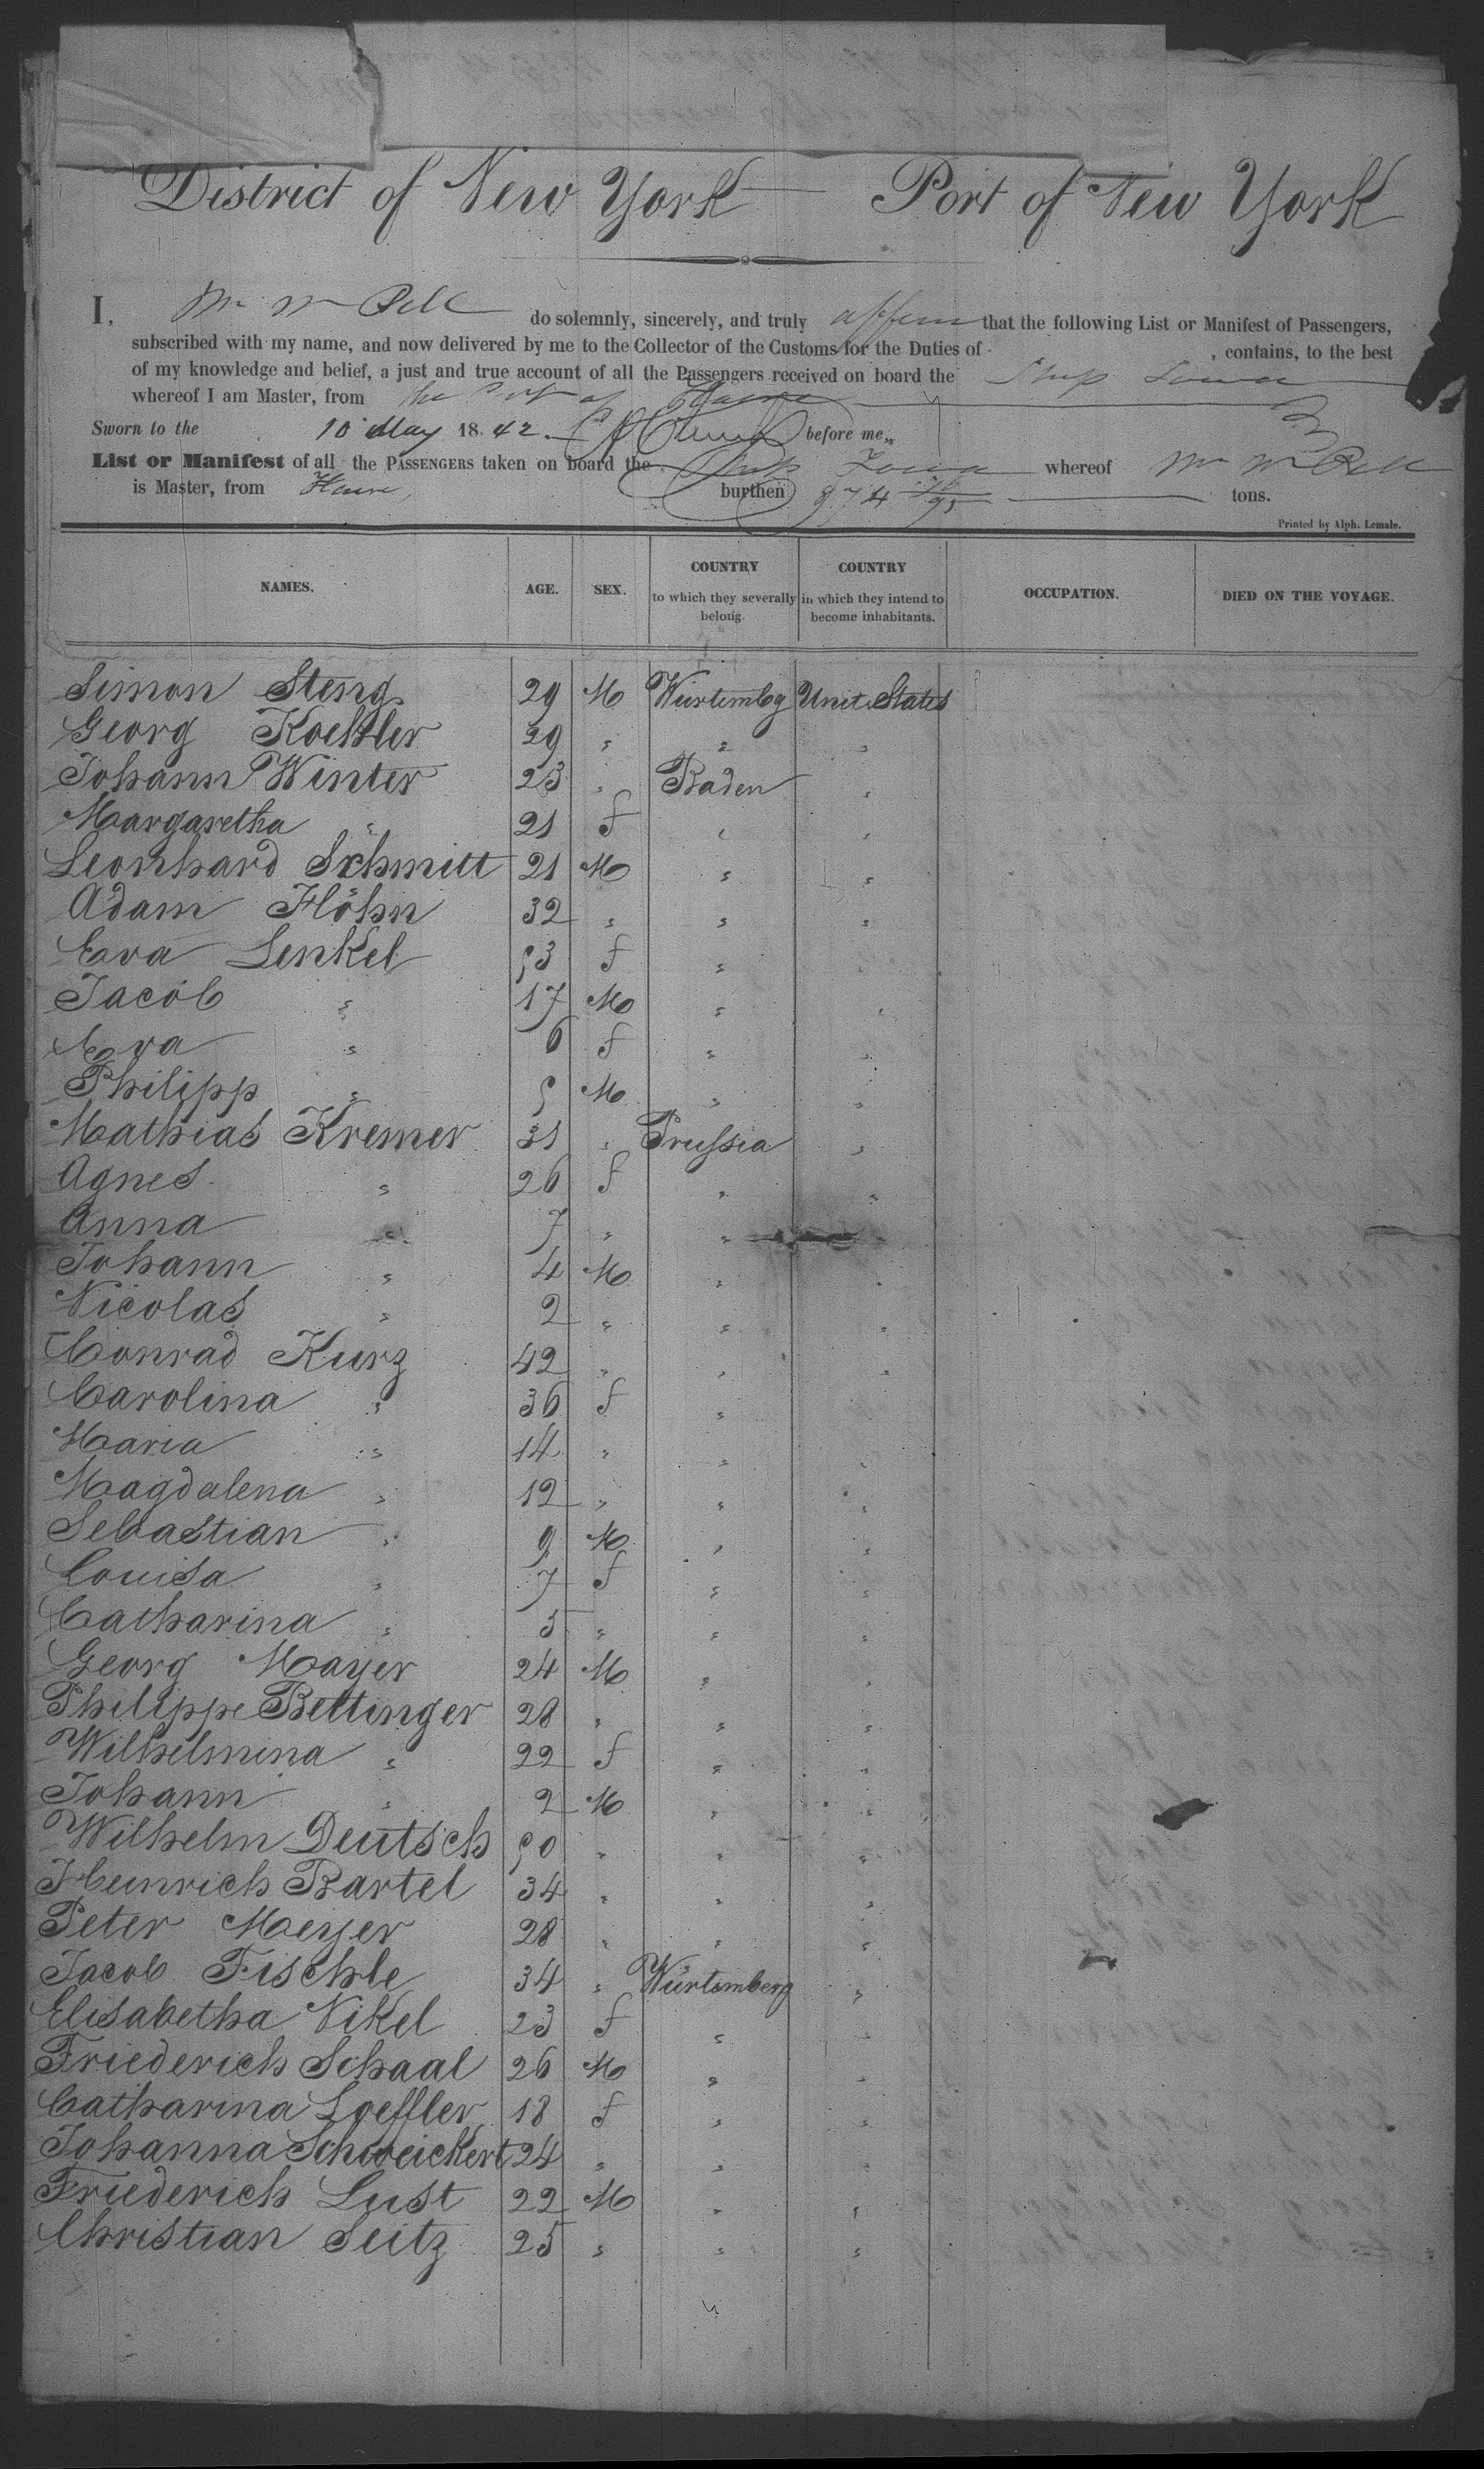 District of New York — Port of New York
I, Wm W Pell do solemnly, sincerely, and truly affirm that the following List or Manifest of Passengers,
subscribed with my name, and now delivered by me to the Collector of the Customs for the Duties of , contains, to the best
of my knowledge and belief, a just and true account of all the Passengers received on board the Ship Iowa
whereof I am Master, from the Port of Havre
Sworn to the 10 May 1842. before me,
List or Manifest of all the PASSENGERS taken on board the Ship Iowa whereof Wm W Pell
is Master, from Havre, burthen 874 tons.
Printed by Alph. Lemale.
NAMES. AGE. SEX. COUNTRY to which they severally belong. COUNTRY in which they intend to become inhabitants. OCCUPATION. DIED ON THE VOYAGE.
Simon Steng 29 M Würtembg Unit. States
Georg Koehler 29 " " "
Johann Winter 23 " Baden "
Margaretha " 21 f " "
Leonhard Schmitt 21 M " "
Adam Flöhn 32 " " "
Eva Lenkel 53 f " "
Jacob " 17 M " "
Eva " 6 f " "
Philipp " 5 M " "
Mathias Kremer 31 " Prussia "
Agnes " 26 f " "
Anna " 7 " " "
Johann " 4 M " "
Nicolas " 2 " " "
Conrad Kurz 42 " " "
Carolina " 36 f " "
Maria " 14 " " "
Magdalena " 12 " " "
Sebastian " 9 M " "
Louisa " 7 f " "
Catharina " 5 " " "
Georg Mayer 24 M " "
Philippe Bettinger 28 " " "
Wilhelmina " 22 f " "
Johann " 2 M " "
Wilhelm Deutsch 50 " " "
Heinrich Bartel 34 " " "
Peter Meyer 28 " " "
Jacob Fischle 34 " Würtemberg "
Elisabetha Nikel 23 f " "
Friederich Schaal 26 M " "
Catharina Loeffler 18 f " "
Johanna Schweickert 24 " " "
Friederich Lust 22 M " "
Christian Seitz 25 " " "